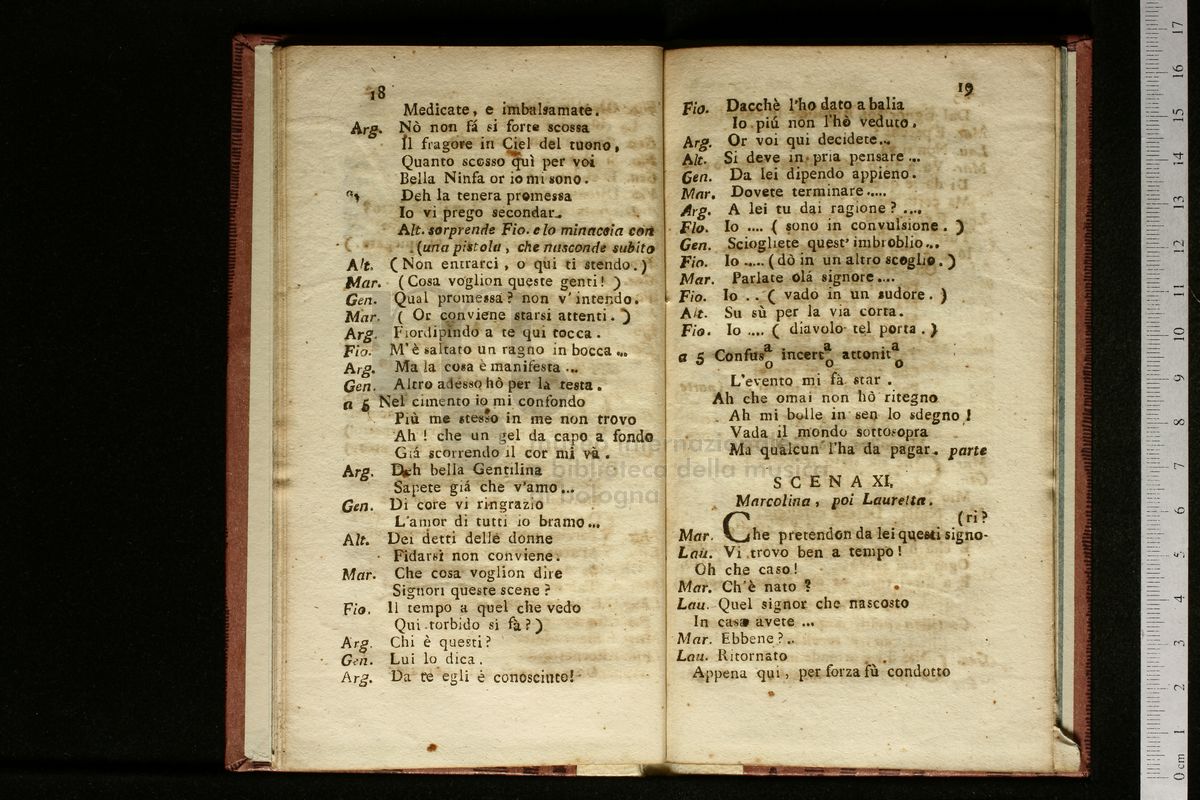 18
Medicate, e imbalsamate.
Arg. Nò non fá si forte scossa
Il fragore in Ciel del tuono,
Quanto scosso quì per voi
Bella Ninfa or io mi sono.
Deh la tenera promessa
Io vi prego secondar.
Alt. sorprende Fio. e lo minaccia con
(una pistola, che nasconde subito
Alt. (Non entrarci, o qui ti stendo.)
Mar. (Cosa voglion queste genti! )
Gen. Qual promessa? non v'intendo.
Mar. ( Or conviene starsi attenti. )
Arg. Fiordipindo a te qui tocca.
Fio. M'è saltato un ragno in bocca...
Arg. Ma la cosa è manifesta...
Gen. Altro adesso hò per la testa.
a 5 Nel cimento io mi confondo
Più me stesso in me non trovo
Ah ! che un gel da capo a fondo
Giá scorrendo il cor mi va.
Arg. Deh bella Gentilina
Sapete giá che v'amo...
Gen. Di core vi ringrazio
L'amor di tutti io bramo...
Alt. Dei detti delle donne
Fidarsi non conviene.
Mar. Che cosa voglion dire
Signori queste scene?
Fio. Il tempo a quel che vedo
Qui torbido si fà?)
Arg. Chi è questi?
Gen. Lui lo dica.
Arg. Da te egli é conosciuto!
19
Fio. Dacchè l'ho dato a balia
Io piú non l'hò veduto.
Arg. Or voi qui decidete...
Alt. Si deve in pria pensare...
Gen. Da lei dipendo appieno.
Mar. Dovete terminare.....
Arg. A lei tu dai ragione? ....
Fio. Io .... ( sono in convulsione. )
Gen. Sciogliete quest' imbroglio...
Fio. Io ..... (dò in un altro scoglio.)
Mar. Parlate olá signore....
Fio. Io .. ( vado in un sudore. )
Alt. Su sù per la via corta.
Fio. Io .... ( diavolo tel porta. )
a 5 Confus a/o incert a/o attonit a/o
L'evento mi fà star .
Ah che omai non hò ritegno
Ah mi bolle in sen lo sdegno !
Vada il mondo sottosopra
Ma qualcun l'ha da pagar. parte
SCENA XI.
Marcolina, poi Lauretta.
(ri?
Mar. Che pretendon da lei questi signo-
Lau. Vi trovo ben a tempo !
Oh che caso!
Mar. Ch'è nato ?
Lau. Quel signor che nascosto
In casa avete ...
Mar. Ebbene?..
Lau. Ritornato
Appena qui, per forza fù condotto
museo internazionale
biblioteca della musica
di bologna
0 cm 1 2 3 4 5 6 7 8 9 10 11 12 13 14 15 16 17